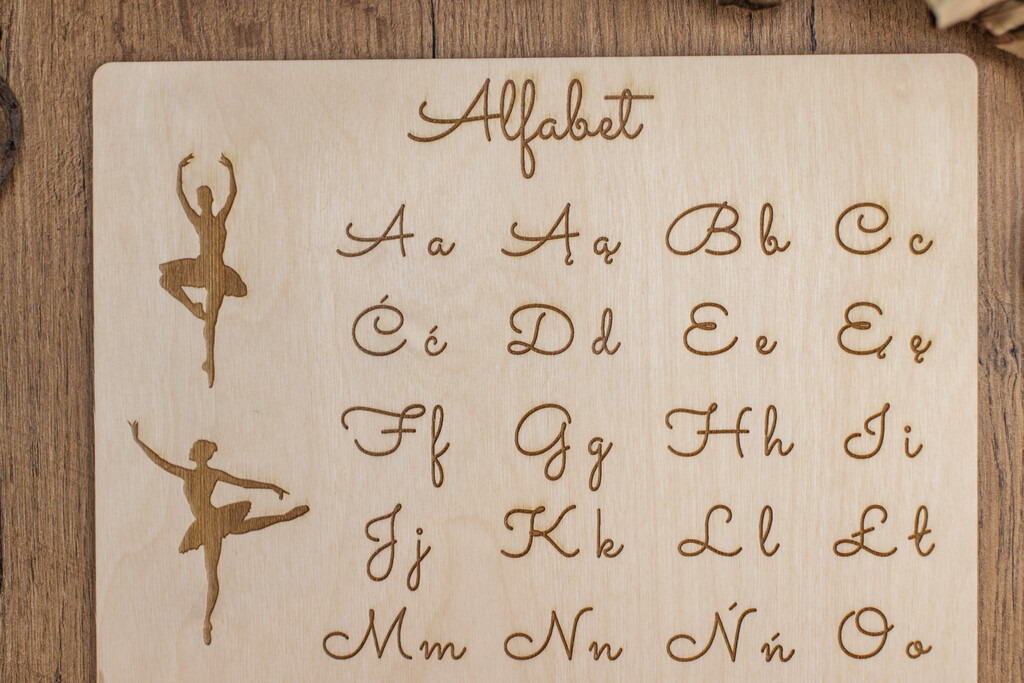 Alfabet
A a Ą ą B b C c
Ć ć D d E e Ę ę
F f G g H h I i
J j K k L l Ł ł
M m N n Ń ń O o